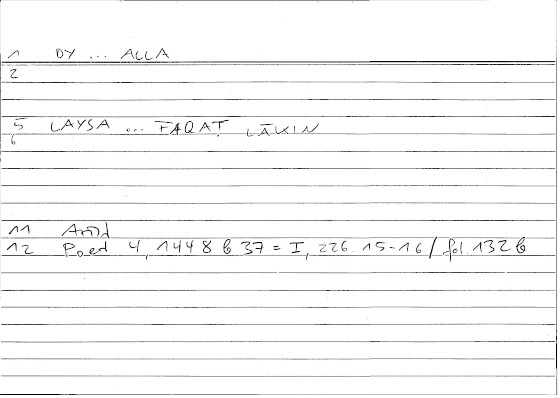 1 DY ... ALLA
2
5 LAYSA ... FAQAṬ LĀKIN
6
11 Arist
12 Poet 4, 1448 b 37 = I, 226. 15-16 / fol. 132 b